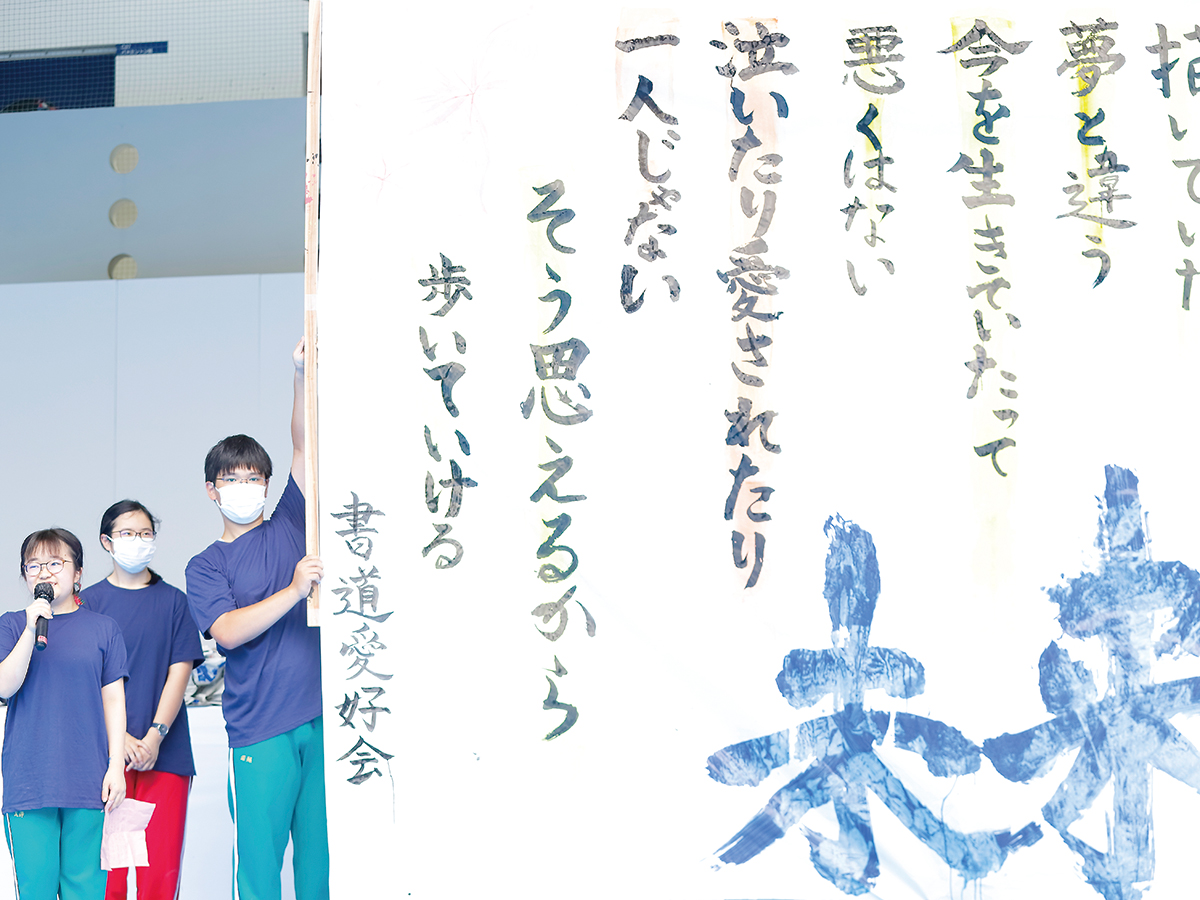 描いていた
夢と違う
今を生きていたって
悪くはない
泣いたり愛されたり
一人じゃない
そう思えるから
歩いていける
書道愛好会
未来